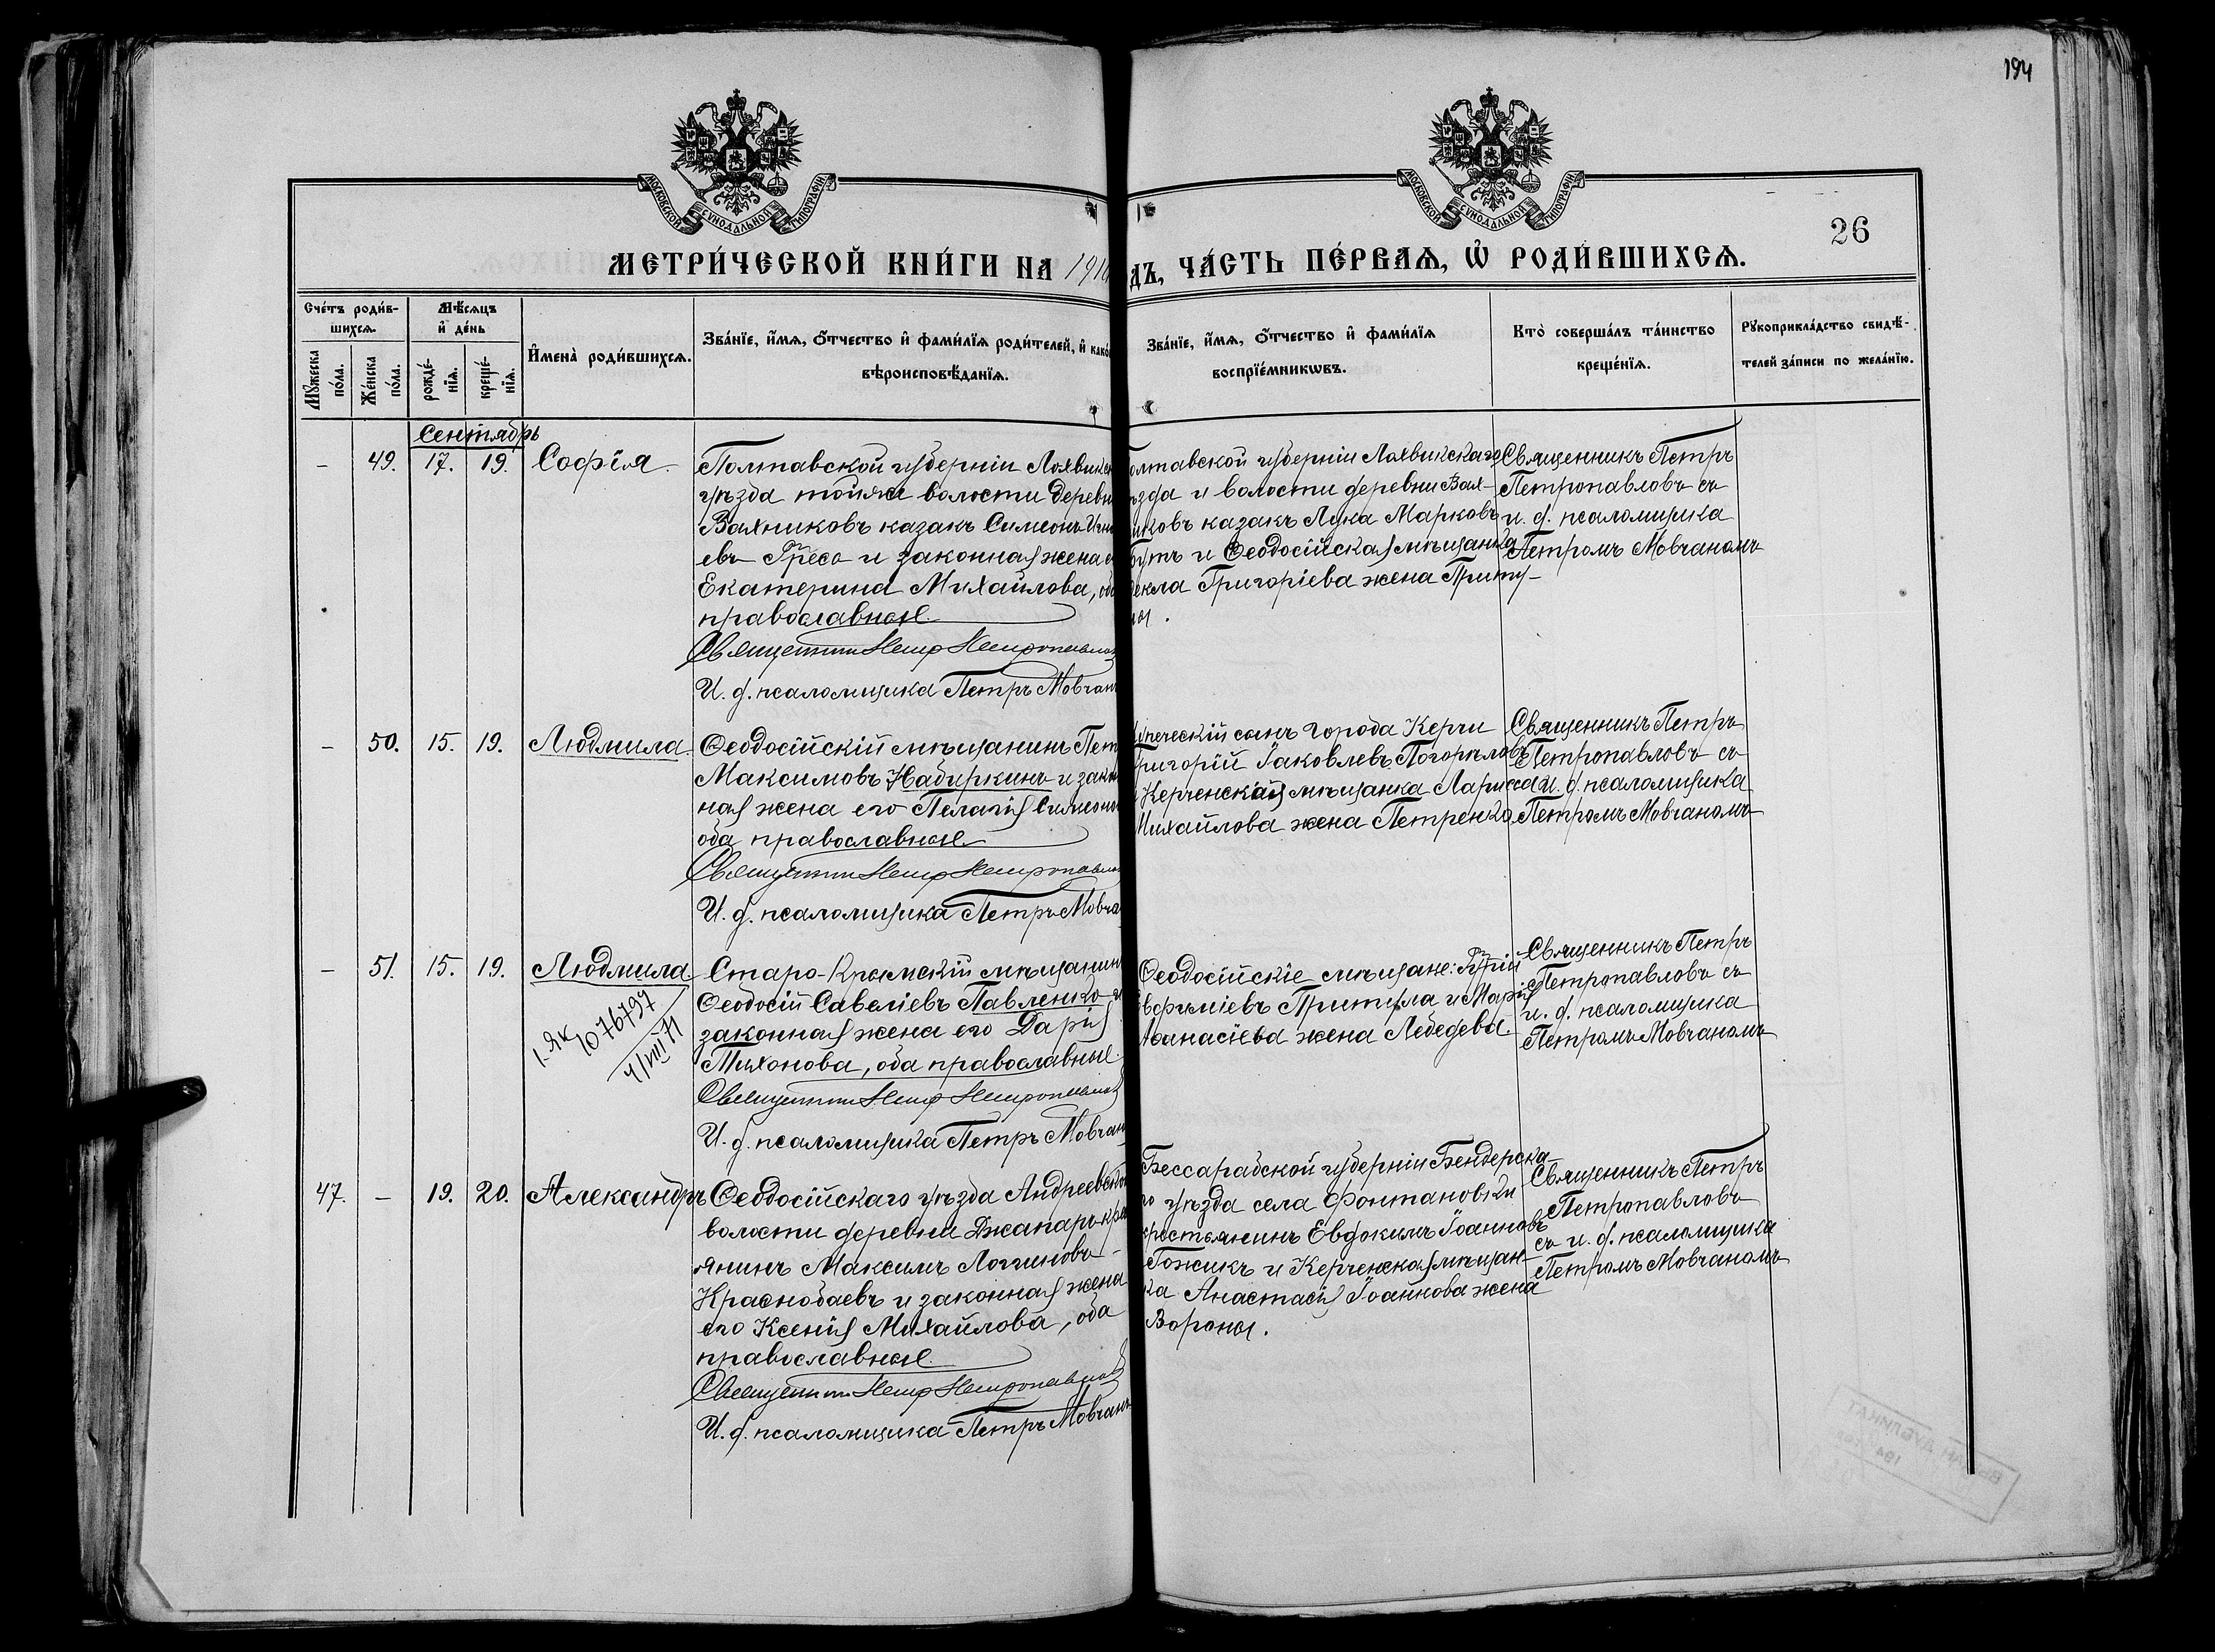 194
МОСКОВСКОЙ СѴНОДАЛЬНОЙ ТИПОГРАФІИ
МОСКОВСКОЙ СѴНОДАЛЬНОЙ ТИПОГРАФІИ
26
МЕТРИ́ЧЕСКОЙ КНИ́ГИ НА 191
ДЪ, ЧА́СТЬ ПЕ́РВАѦ, Ѽ РОДИ́ВШИХСѦ.
Сче́тъ роди́в-
шихсѧ.
Мѣ́сѧцъ
и҆ де́нь
Мꙋ́жеска
по́ла.
Же́нска
по́ла.
рожде́-
нїѧ.
креще́-
нїѧ.
И҆мена̀ роди́вшихсѧ.
Зва́нїе, и҆́мѧ, ѻ҆́тчество и҆ фами́лїѧ роди́телей, и҆ како́
вѣроисповѣ́данїѧ.
Зва́нїе, и҆́мѧ, ѻ҆́тчество и҆ фами́лїѧ
воспрїе́мникѡвъ.
Кто̀ соверша́лъ та́инство
креще́нїѧ.
Рꙋкоприкла́дство свидѣ́-
телей за́писи по жела́нїю.
Сентябрь
– 49. 17. 19. Софія.
Полтавской губерніи Лохвицк
уѣзда тойже волости деревни
Вахниковъ казакъ Симеонъ
евъ и законная жена е
Екатерина Михайлова, оба
православные.
Священникъ Петръ Петропавлов
И. д. псаломщика Петръ Мовчан
олтавской губерніи Лохвицскаго
ѣзда и волости деревни Вах-
иковъ казакъ Лука Марковъ
бутъ и Ѳеодосійская мѣщанка
екла Григоріева жена Приту-
лы.
Священникъ Петръ
Петропавловъ съ
и. д. псаломщика
Петромъ Мовчаномъ
– 50. 15. 19. Людмила.
Ѳеодосійскій мѣщанинъ Пет
Максимовъ Набиркинъ и закон
ная жена его Пелагія Симеоно
оба православные.
Священникъ Петръ Петропавлов
И. д. псаломщика Петръ Мовча
печескій сынъ города Керчи
ригорій Іаковлевъ Погорѣловъ
Керченская мѣщанка Лариса
Михайлова жена Петренко
Священникъ Петръ
Петропавловъ съ
и. д. псаломщика
Петромъ Мовчаномъ
– 51. 15. 19. Людмила.
1.ЯК 1076797
4/VIII 71
Старо-Крымскій мѣщанинъ
Ѳеодосій Савеліевъ Павленко и
законная жена его Дарія
Тихонова, оба православные.
Священникъ Петръ Петропавлов
И. д. псаломщика Петръ Мовчан
Ѳеодосійскіе мѣщане: Гурій
вфиміевъ Притула и Марія
Аѳанасіева жена Лебедева.
Священникъ Петръ
Петропавловъ съ
и. д. псаломщика
Петромъ Мовчаномъ
47. – 19. 20. Александръ
Ѳеодосійскаго уѣзда Андреевской
волости деревни Джапаръ кре
янинъ Максимъ Логгиновъ
Краснобаевъ и законная жена
его Ксенія Михайлова, оба
православные.
Священникъ Петръ Петропавлов
И. д. псаломщика Петръ Мовчанъ
Бессарабской губерніи Бендерска-
го уѣзда села Фонтановки
крестьянинъ Евдокимъ Іоанновъ
Гожикъ и Керченская мѣщан-
ка Анастасія Іоаннова жена
Вороны.
Священникъ Петръ
Петропавловъ
съ и. д. псаломщика
Петромъ Мовчаномъ